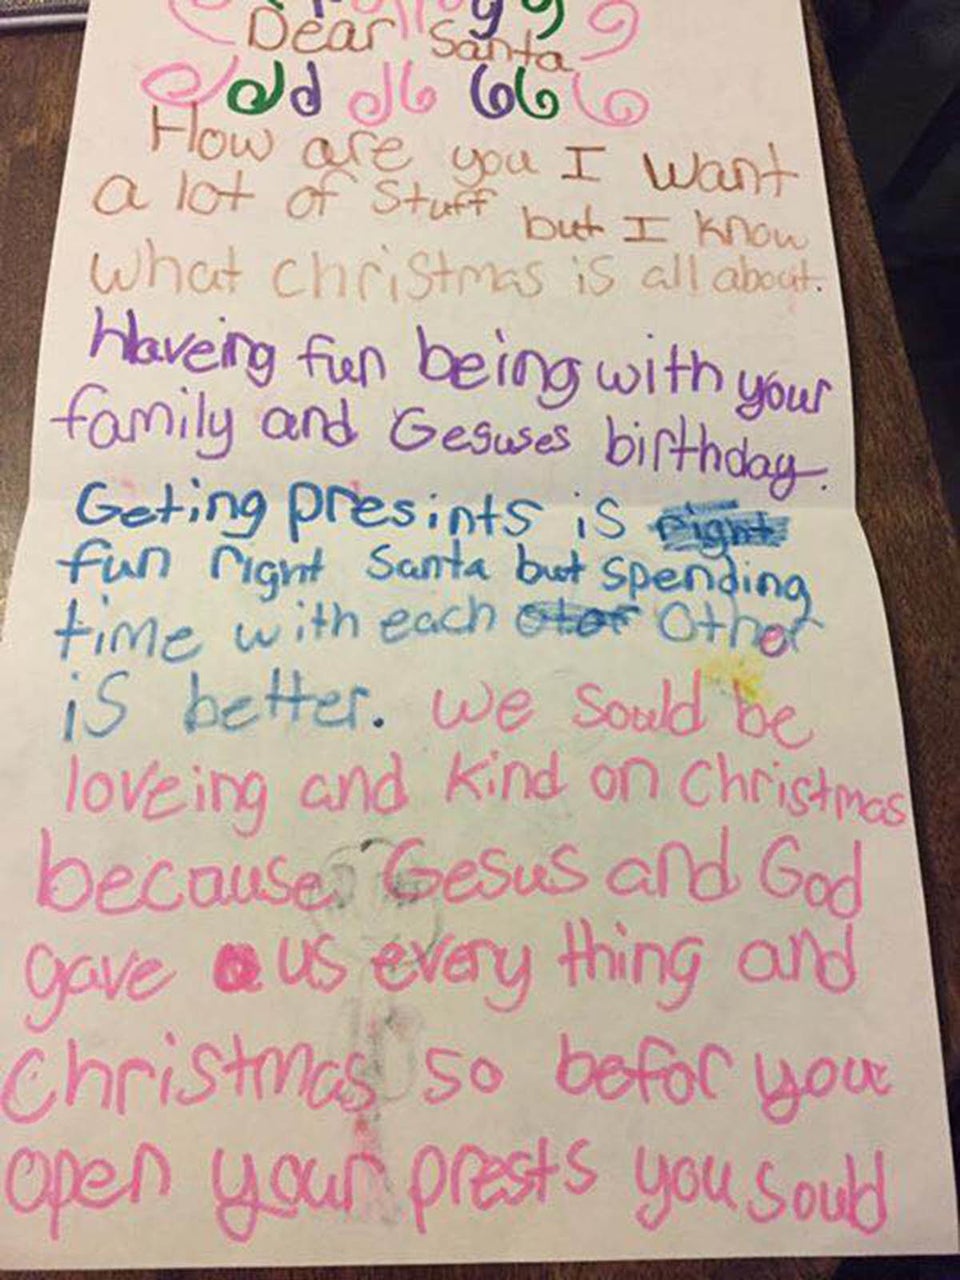 Dear Santa
How are you I want
a lot of stuff but I know
what christmas is all about.
Haveing fun being with your
family and Gesuses birthday.
Geting presints is right
fun right Santa but spending
time with each other
is better. we sould be
loveing and kind on christmas
because Gesus and God
gave us every thing and
christmas so befor your
open your prests you sould